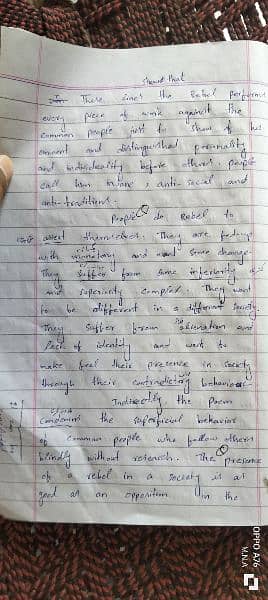 showed that
In These lines the Rebel performs
every piece of work against the
common people just to show of his
eminent and distinguished personality
and individuality before others. people
call him insane, anti-social and
anti-traditions.
People do Rebel to
assert themselves. They are fedup
with monotony and want some change.
They suffer from some inferiority
and superiority complex. They want
to be different in a different society.
They suffer from alienation and
lack of identity and want to
make feel their presence in society
through their contradictory behaviour
Indirectly the poem
condemns the superficial behavior
of common people who follow others
blindly without research. The presence
of a rebel in a society is as
good as an opposition in the
OPPO A76
M.N.A